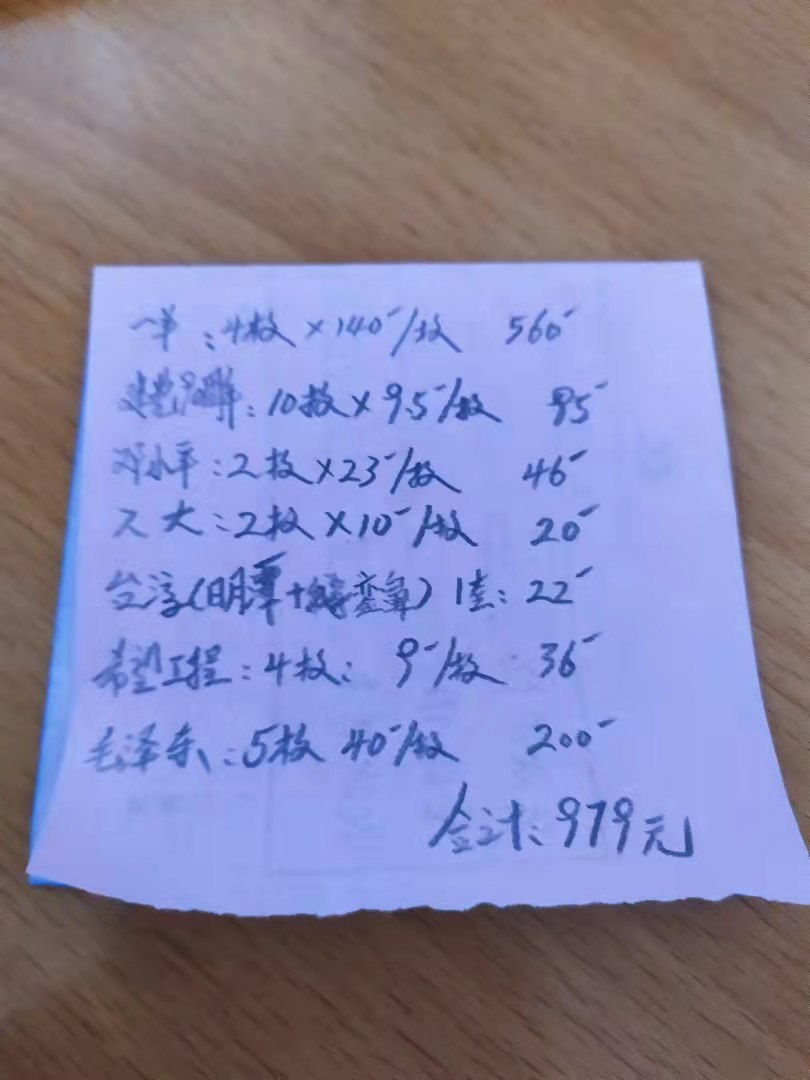 一羊：4枚×140-/枚 560-
建党：10枚×9.5-/枚 95-
邓小平：2枚×23-/枚 46-
人大：2枚×10-/枚 20-
台湾(日月潭+鹅銮鼻) 1套：22-
希望工程：4枚：9-/枚 36-
毛泽东：5枚 40-/枚 200-
合计：979元